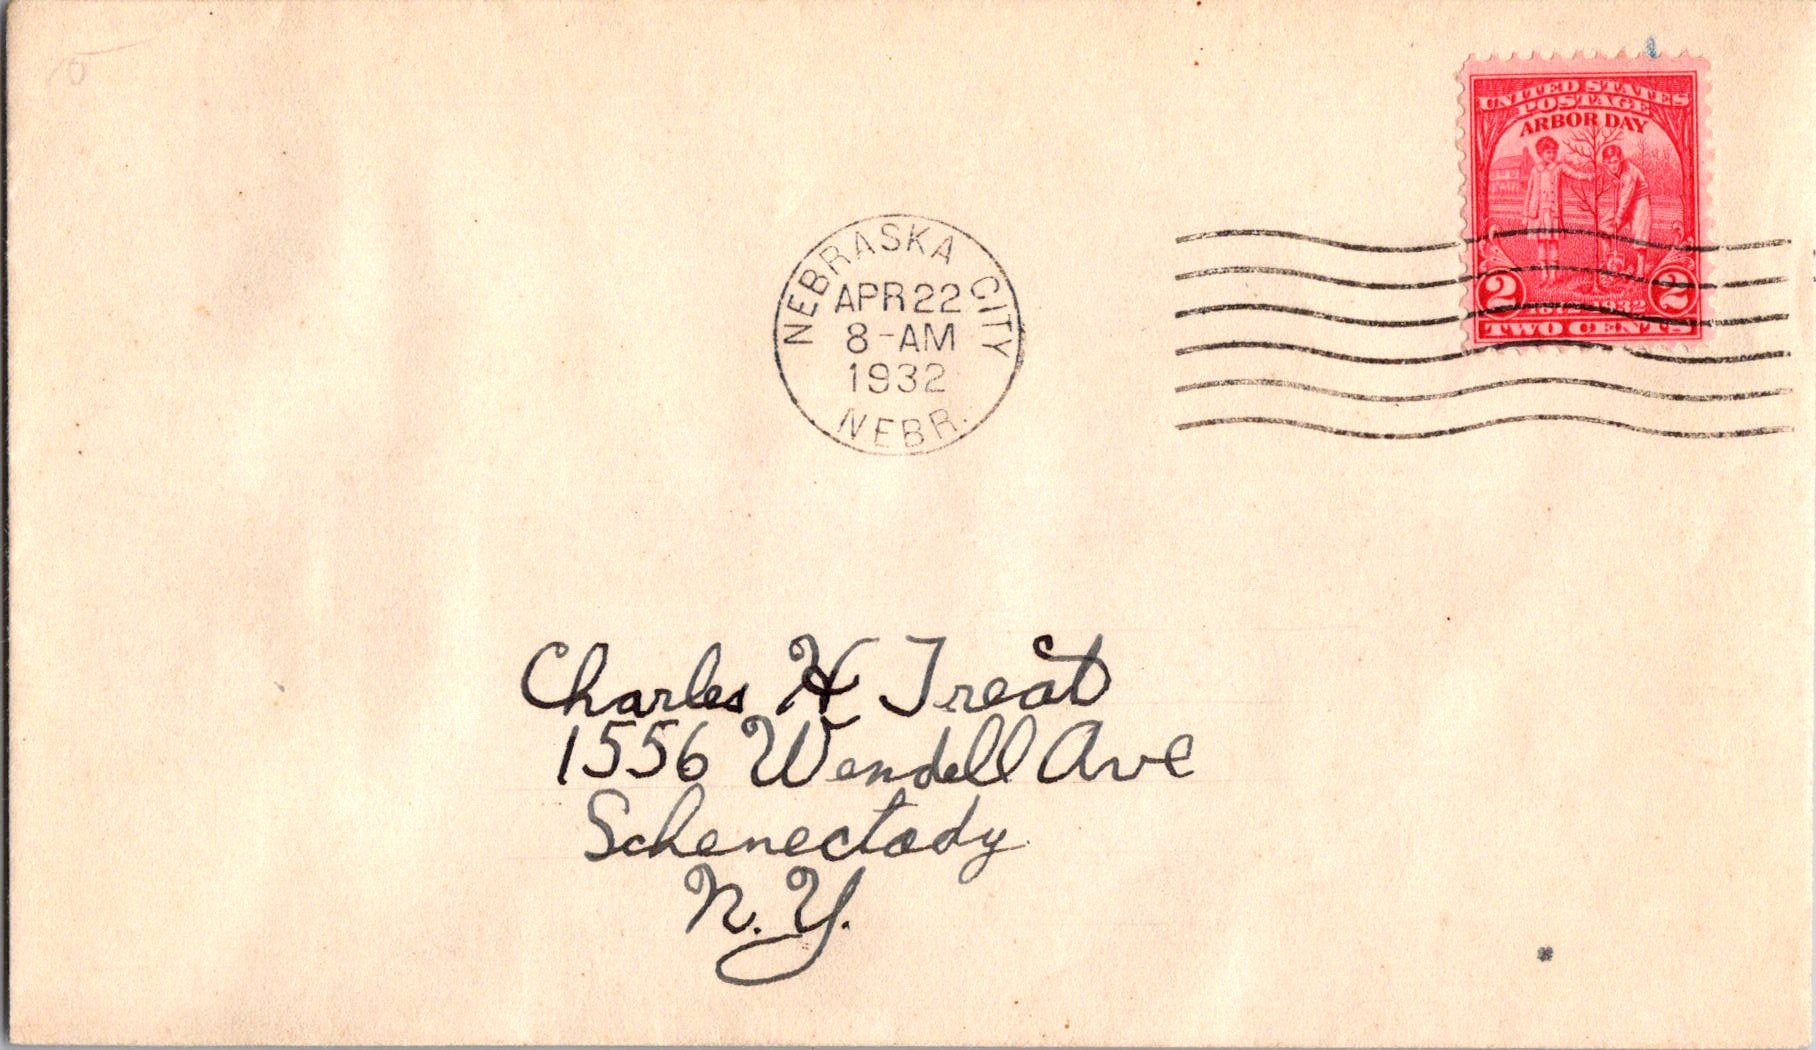 UNITED STATES
POSTAGE
ARBOR DAY
2 1872 1932 2
TWO CENTS
NEBRASKA CITY
APR 22
8-AM
1932
NEBR.
Charles H Treat
1556 Wendell Ave
Schenectady
N.Y.